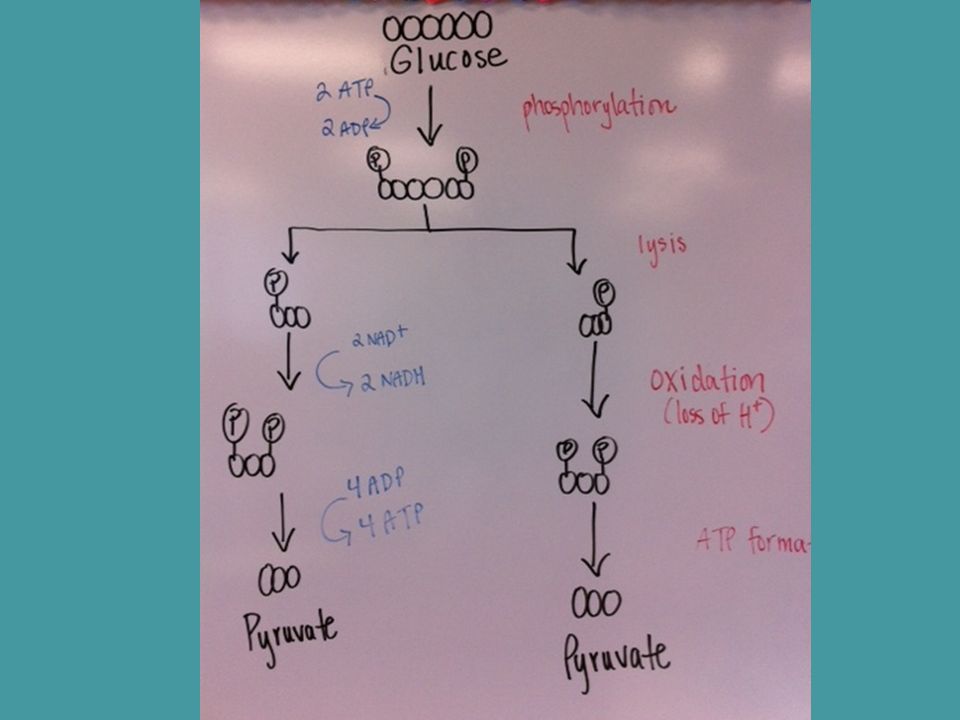 Glucose
2 ATP
2 ADP
phosphorylation
P P
lysis
P
P
2 NAD+
2 NADH
oxidation
(loss of H+)
P P
P P
4 ADP
4 ATP
ATP forma
Pyruvate
Pyruvate